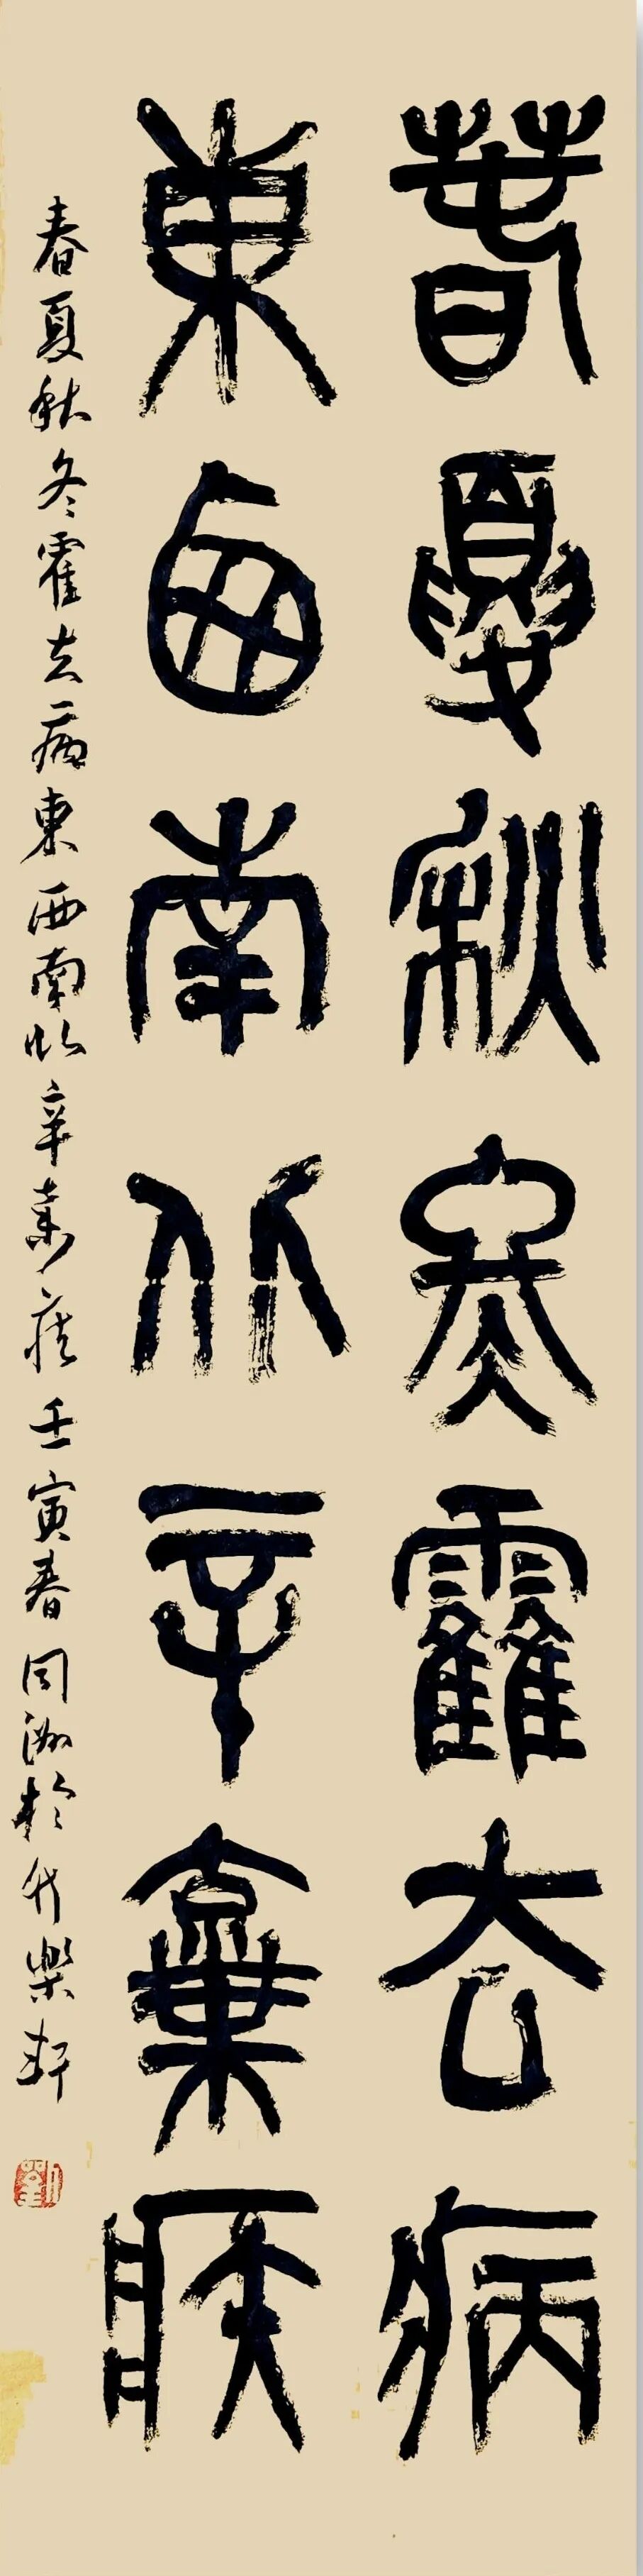 春夏秋冬霍去病
東西南北辛棄疾
春夏秋冬霍去病東西南北辛棄疾壬寅春同洲於竹樂軒
劉